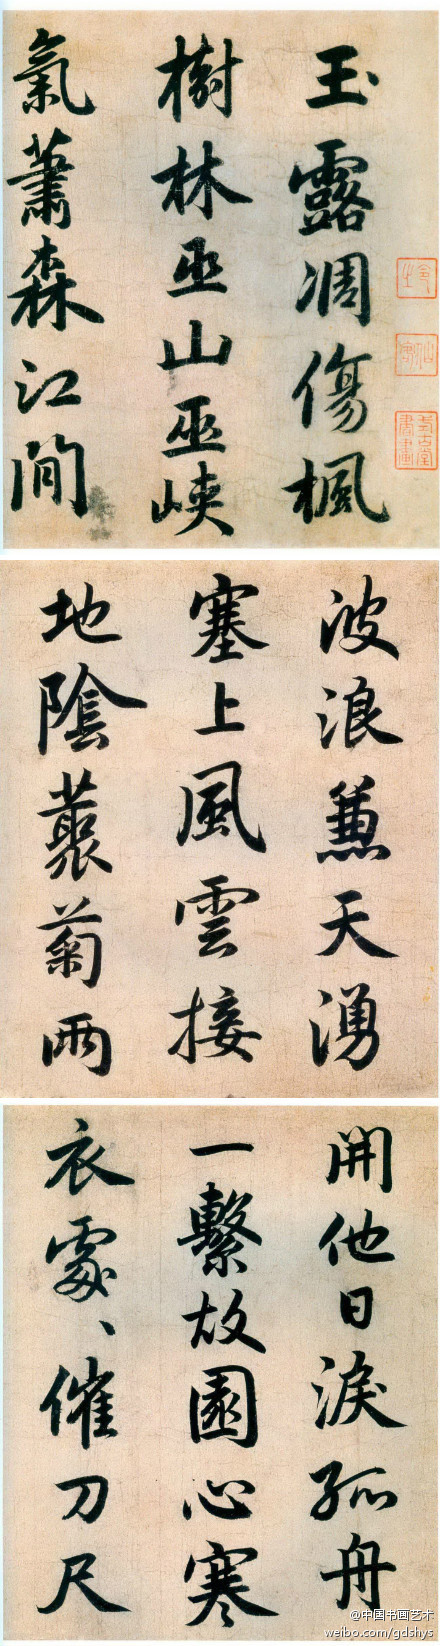 令之
仙客
式古堂書畫
玉露凋傷楓
樹林巫山巫峽
氣蕭森江間
波浪兼天湧
塞上風雲接
地陰藂菊兩
開他日淚孤舟
一繫故園心寒
衣處、催刀尺
@中国书画艺术
weibo.com/gdshys